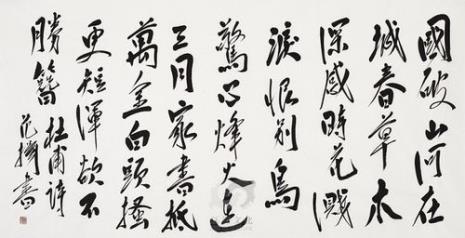 國破山河在
城春草木
深感時花濺
淚恨别鳥
驚心烽火連
三月家書抵
萬金白頭搔
更短渾欲不
勝簪
杜甫詩
范書